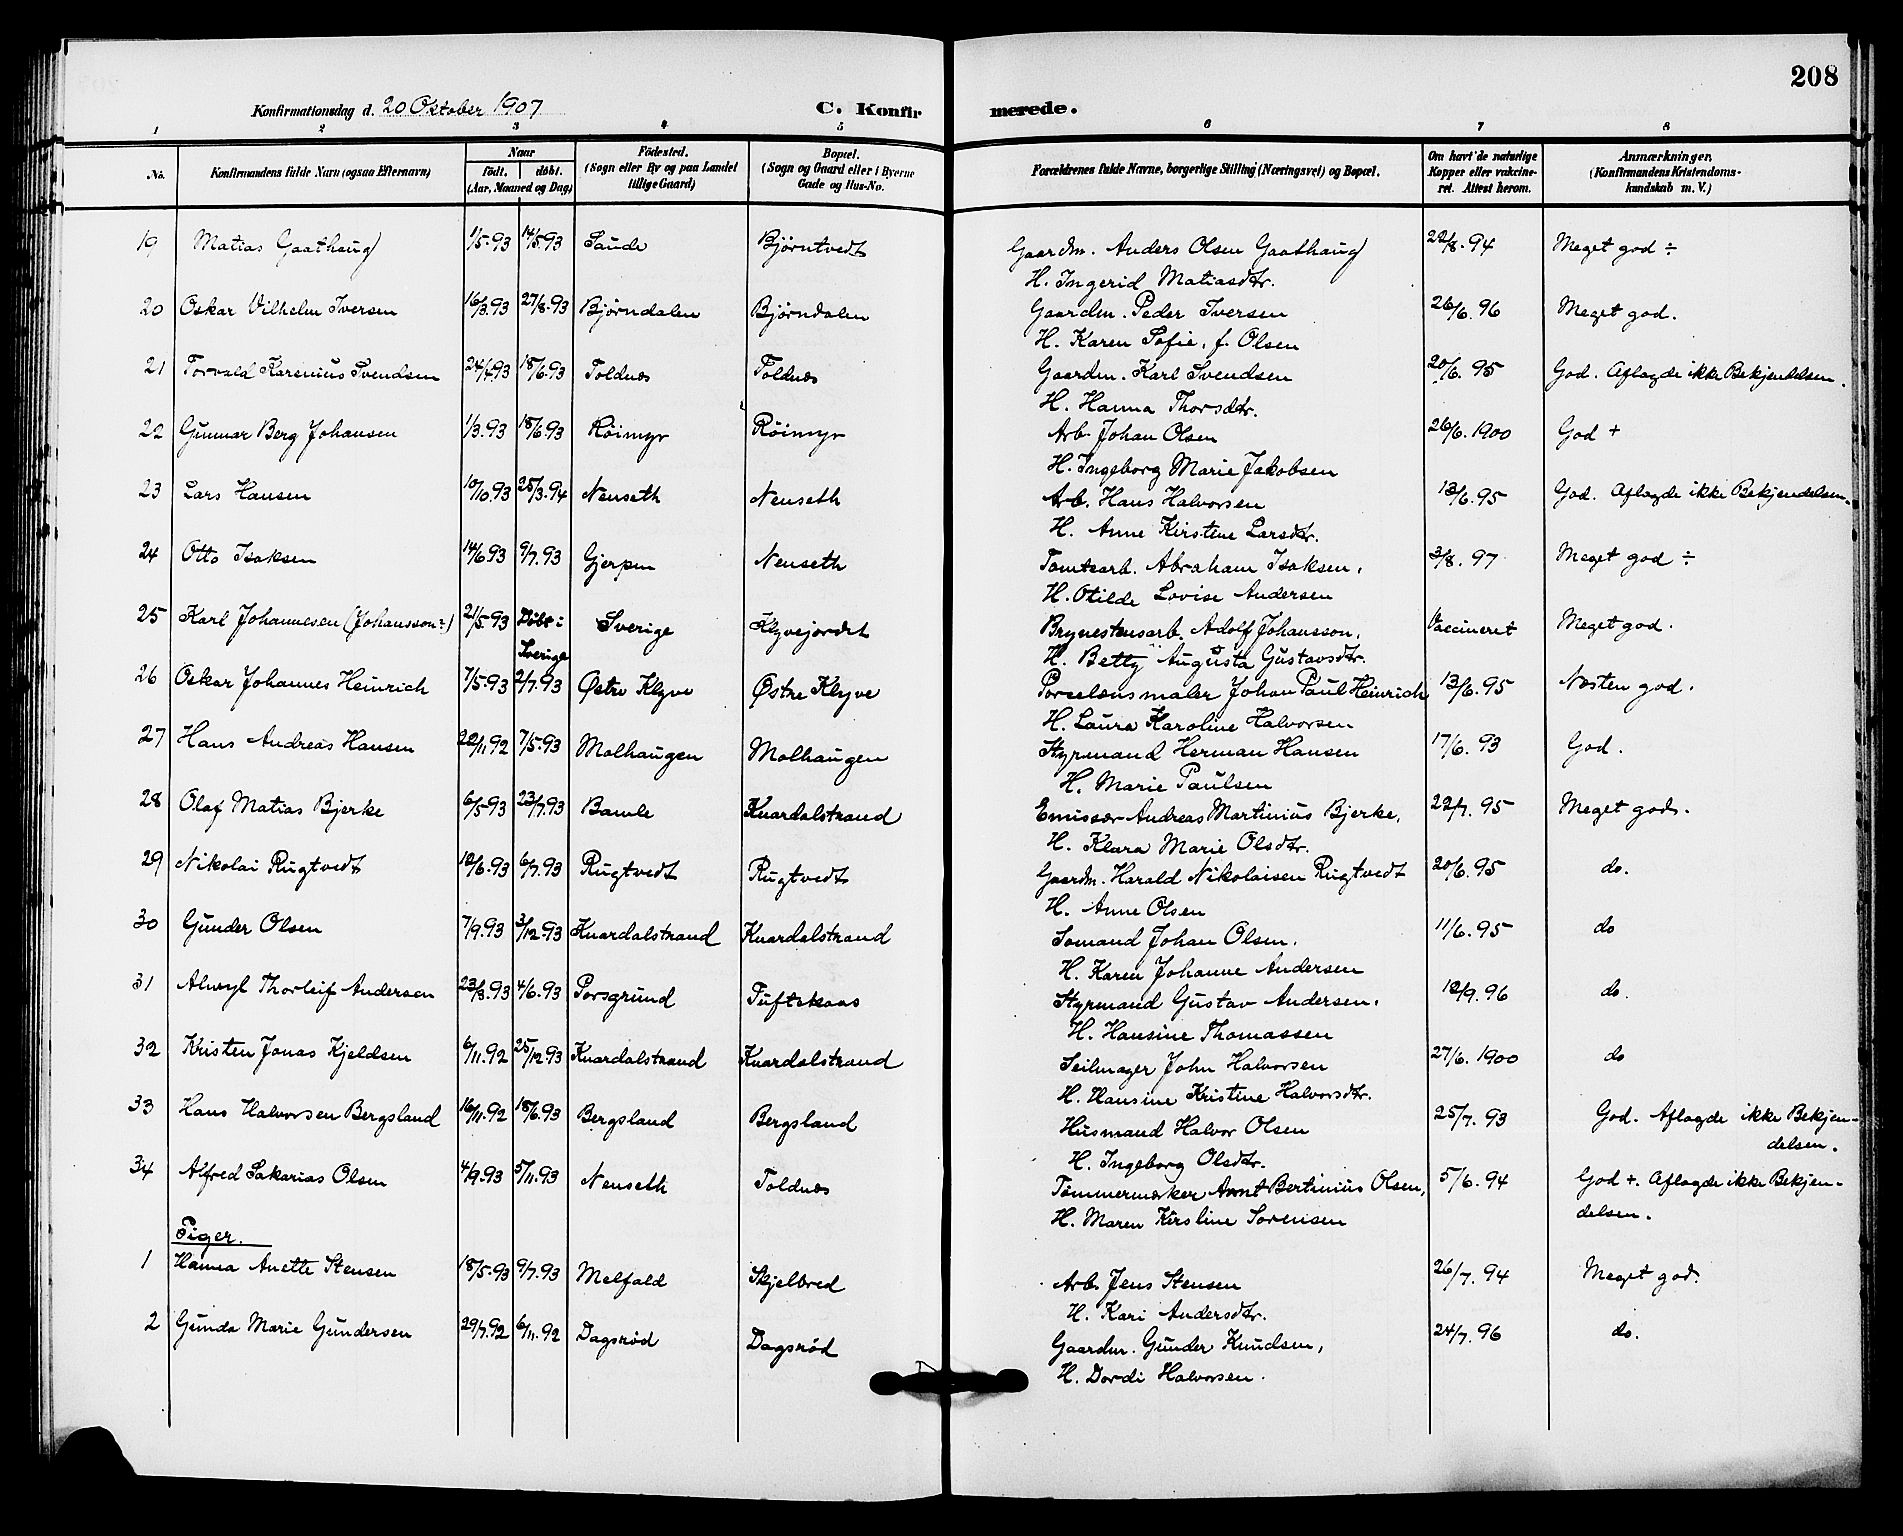 208
Konfirmationsdag d. 20 Oktober 1907 C. Konfirmerede.
1 2 3 4 5 6 7 8
No. Konfirmandens fulde Navn (ogsaa Efternavn) Naar födt. döbt. (Aar, Maaned og Dag) Födested. (Sogn eller By og paa Landet tillige Gaard) Bopæl. (Sogn og Gaard eller i Byerne Gade og Hus-No. Forældrenes fulde Navne, borgerlige Stilling (Næringsvei) og Bopæl. Om havt de naturlige Kopper eller vakcineret. Attest herom. Anmærkninger. (Konfirmandens Kristendomskundskab m. V.)
19 Matias Gaathaug 1/5.93 14/5.93 Saude Bjørntvedt Gaardm. Anders Olsen Gaathaug 22/8.94 Meget god ÷
H. Ingerid Matiasdtr.
20 Oskar Vilhelm Iversen 16/3.93 27/8.93 Bjørndalen Bjørndalen Gaardm. Peder Iversen 26/6.96 Meget god.
H. Karen Sofie, f. Olsen
21 Torvald Karenius Svendsen 24/4.93 18/6.93 Toldnæs Toldnæs Gaardm. Karl Svendsen 20/6.95 God. Aflagde ikke Bekjendelsen.
H. Hanna Thorsdtr.
22 Gunnar Berg Johansen 1/3.93 18/6.93 Röimyr Röimyr Arb. Johan Olsen 26/6.1900 God +
H. Ingeborg Marie Jakobsen
23 Lars Hansen 10/10.93 25/3.94 Nenseth Nenseth Arb. Hans Halvorsen 13/6.95 God. Aflagde ikke Bekjendelsen.
H. Anne Kirstine Larsdtr.
24 Otto Isaksen 14/6.93 9/7.93 Gjerpen Nenseth Tomtearb. Abraham Isaksen, 3/8.97 Meget god ÷
H. Otilde Lovise Andersen
25 Karl Johannesen (Johansson?) 21/5.93 Döbt i Sverige Sverige Klyvejordet Brynestensarb. Adolf Johansson, Vaccineret Meget god.
H. Betty Augusta Gustavsdtr.
26 Oskar Johannes Heinrich 7/5.93 2/7.93 Østre Klyve Østre Klyve Porselænsmaler Johan Paul Heinrich 13/6.95 Næsten god.
H. Laura Karoline Halvorsen
27 Hans Andreas Hansen 22/11.92 7/5.93 Molhaugen Molhaugen Styrmand Herman Hansen 17/6.93 God.
H. Marie Paulsen
28 Olaf Matias Bjerke 6/5.93 23/7.93 Bamle Knardalstrand Emissær Andreas Martinius Bjerke, 22/7.95 Meget god.
H. Klara Marie Olsdtr.
29 Nikolai Rugtvedt 12/6.93 6/7.93 Rugtvedt Rugtvedt Gaardm. Harald Nikolaisen Rugtvedt 20/6.95 do.
H. Anne Olsen
30 Gunder Olsen 7/9.93 3/12.93 Knardalstrand Knardalstrand Sömand Johan Olsen. 11/6.95 do
H. Karen Johanne Andersen
31 Thorleif Andersen 23/3.93 4/6.93 Porsgrund Tuftekaas Styrmand Gustav Andersen. 12/9.96 do.
H. Hansine Thomassen
32 Kristen Jonas Kjeldsen 6/11.92 25/12.93 Knardalstrand Knardalstrand Seilmager John Halvorsen 27/6.1900 do
H. Hansine Kristine Halvorsdtr.
33 Hans Halvorsen Bergsland 16/11.92 18/6.93 Bergsland Bergsland Husmand Halvor Olsen 25/7.93 God. Aflagde ikke Bekjendelsen.
H. Ingeborg Olsdtr.
34 Alfred Sakarias Olsen 4/9.93 5/11.93 Nenseth Toldnæs Tömmermærker Arnt Bertinius Olsen, 5/6.94 God +. Aflagde ikke Bekjendelsen.
H. Maren Kirstine Sörensen
Piger.
1 Hanna Anette Stensen 18/5.93 9/7.93 Melfald Skjelbred Arb. Jens Stensen 26/7.94 Meget god.
H. Kari Andersdtr.
2 Gunda Marie Gundersen 29/7.92 6/11.92 Dagsröd Dagsröd Gaardm. Gunder Knudsen, 24/7.96 do.
H. Dordi Halvorsen.